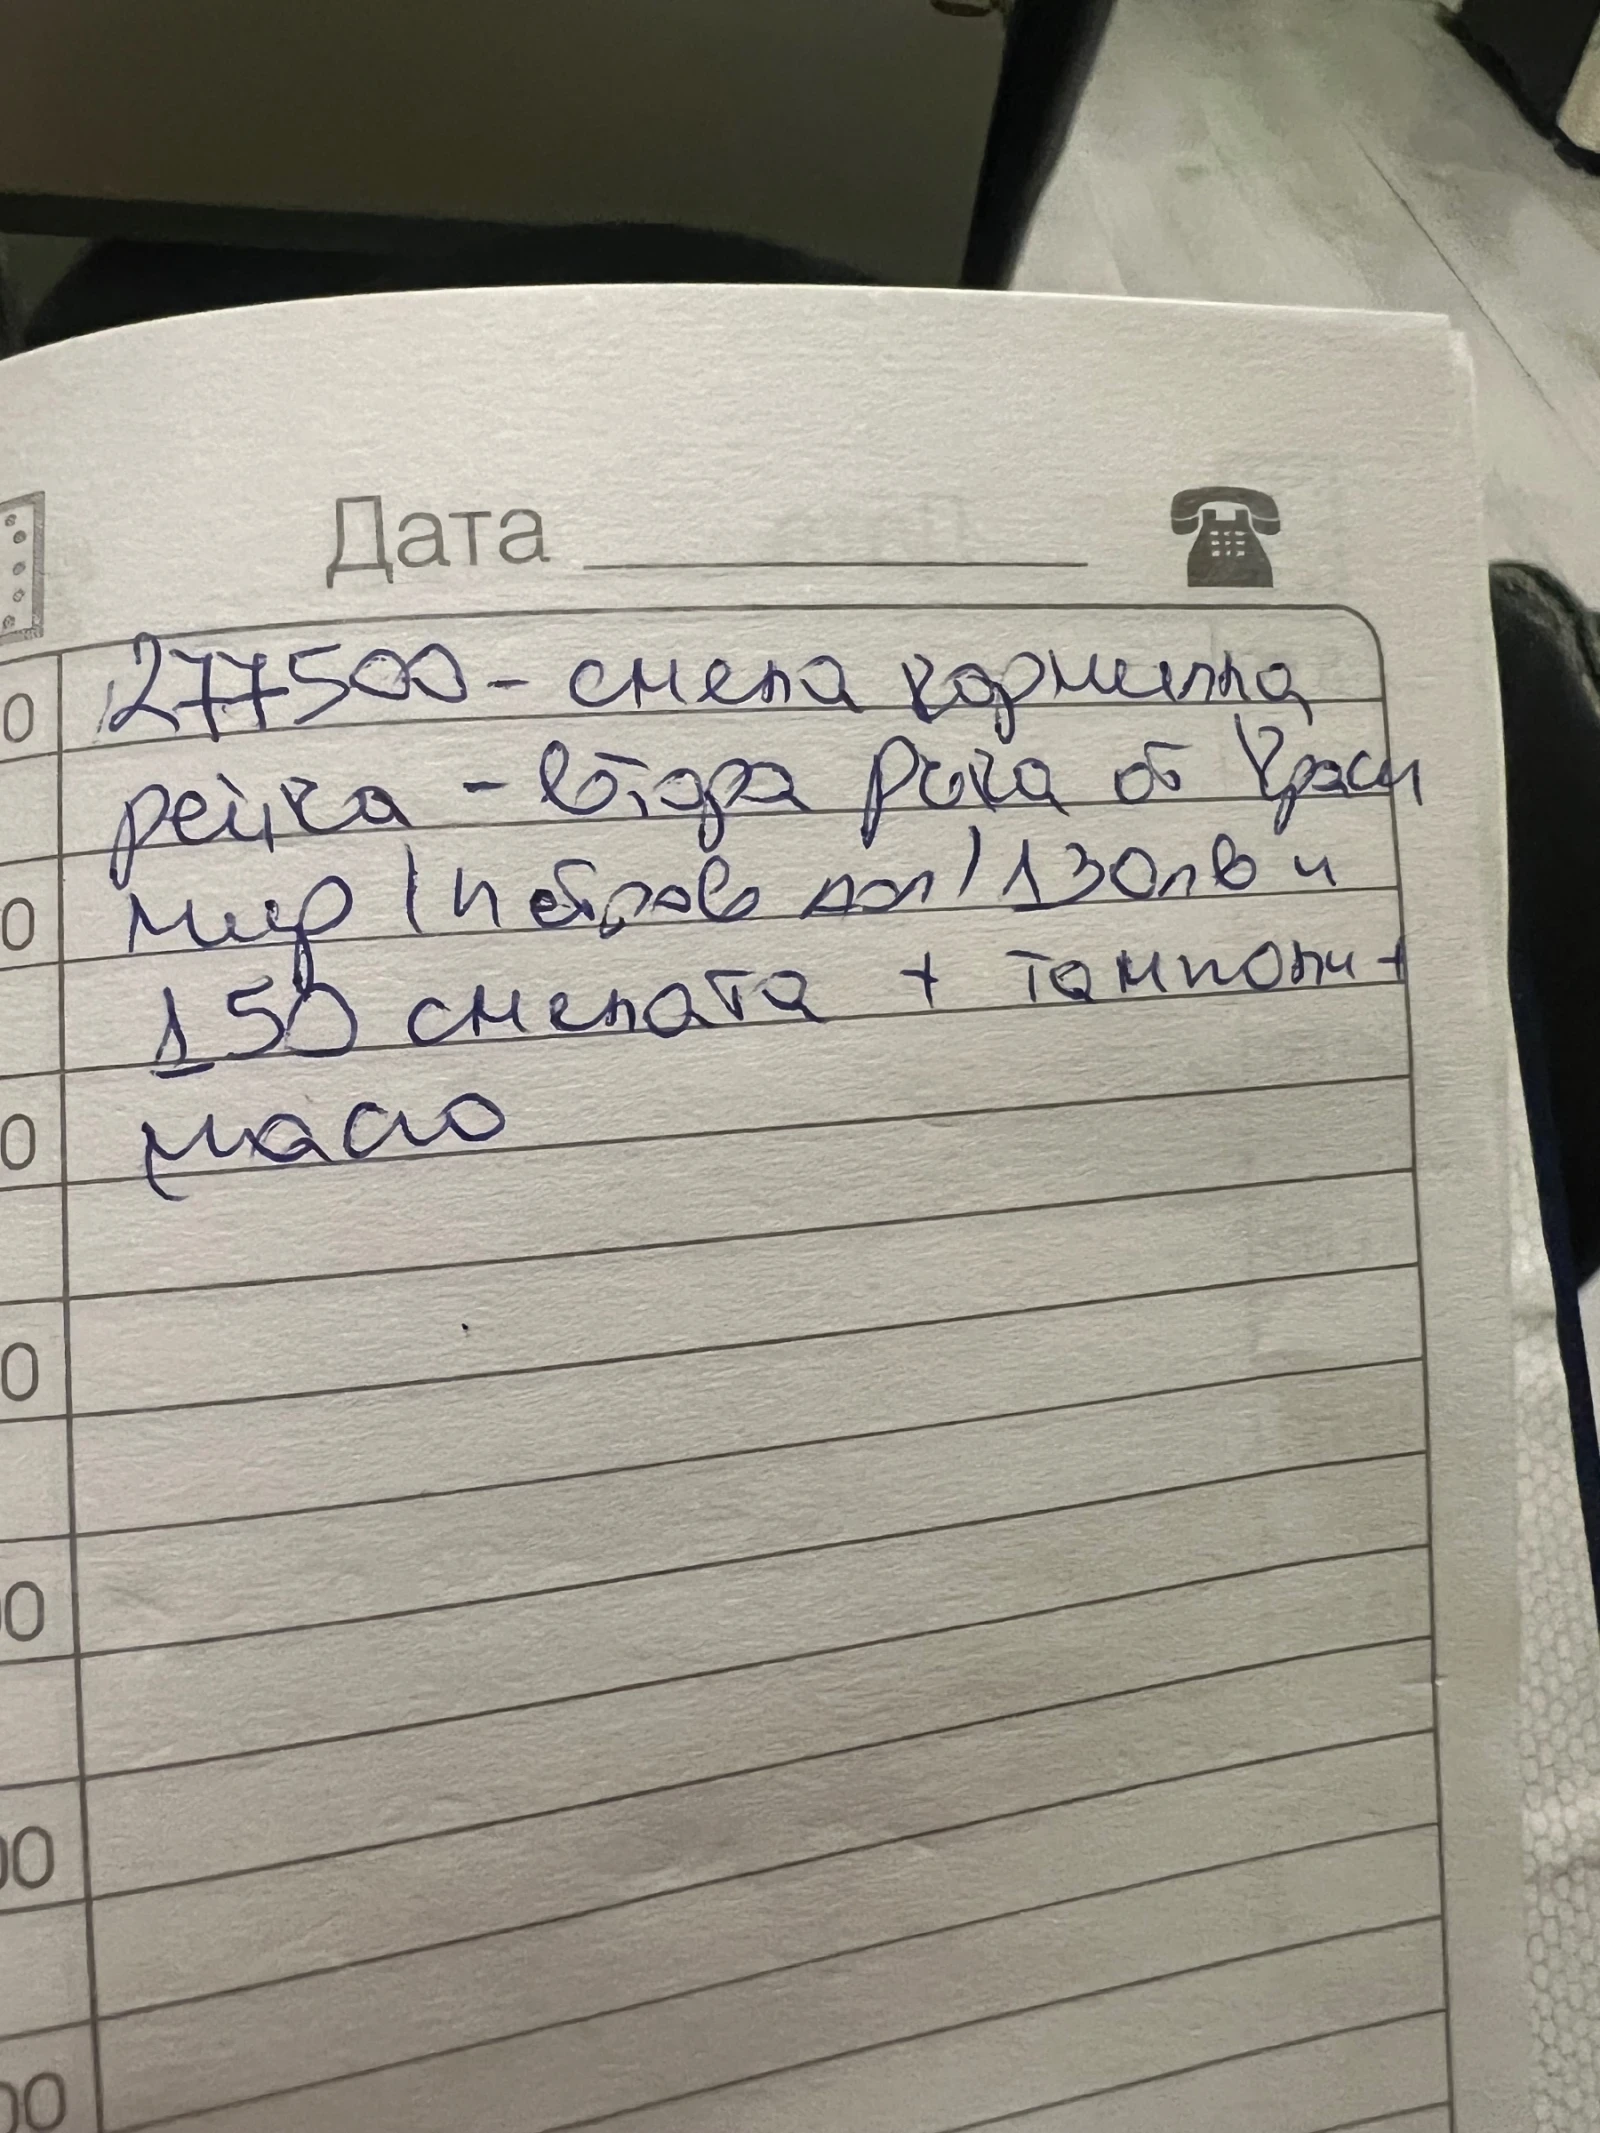 Дата
277500 - смена кормилна
рейка - втора рока от Краси
мир /Петров дол/ 130лв и
150 смената + тампони +
масло
0
0
0
0
00
00
00